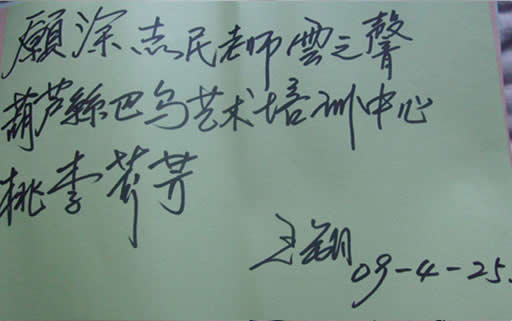 願深志民老师雲之聲
葫芦絲巴乌艺术培训中心
桃李芬芳
王翔
09-4-25.